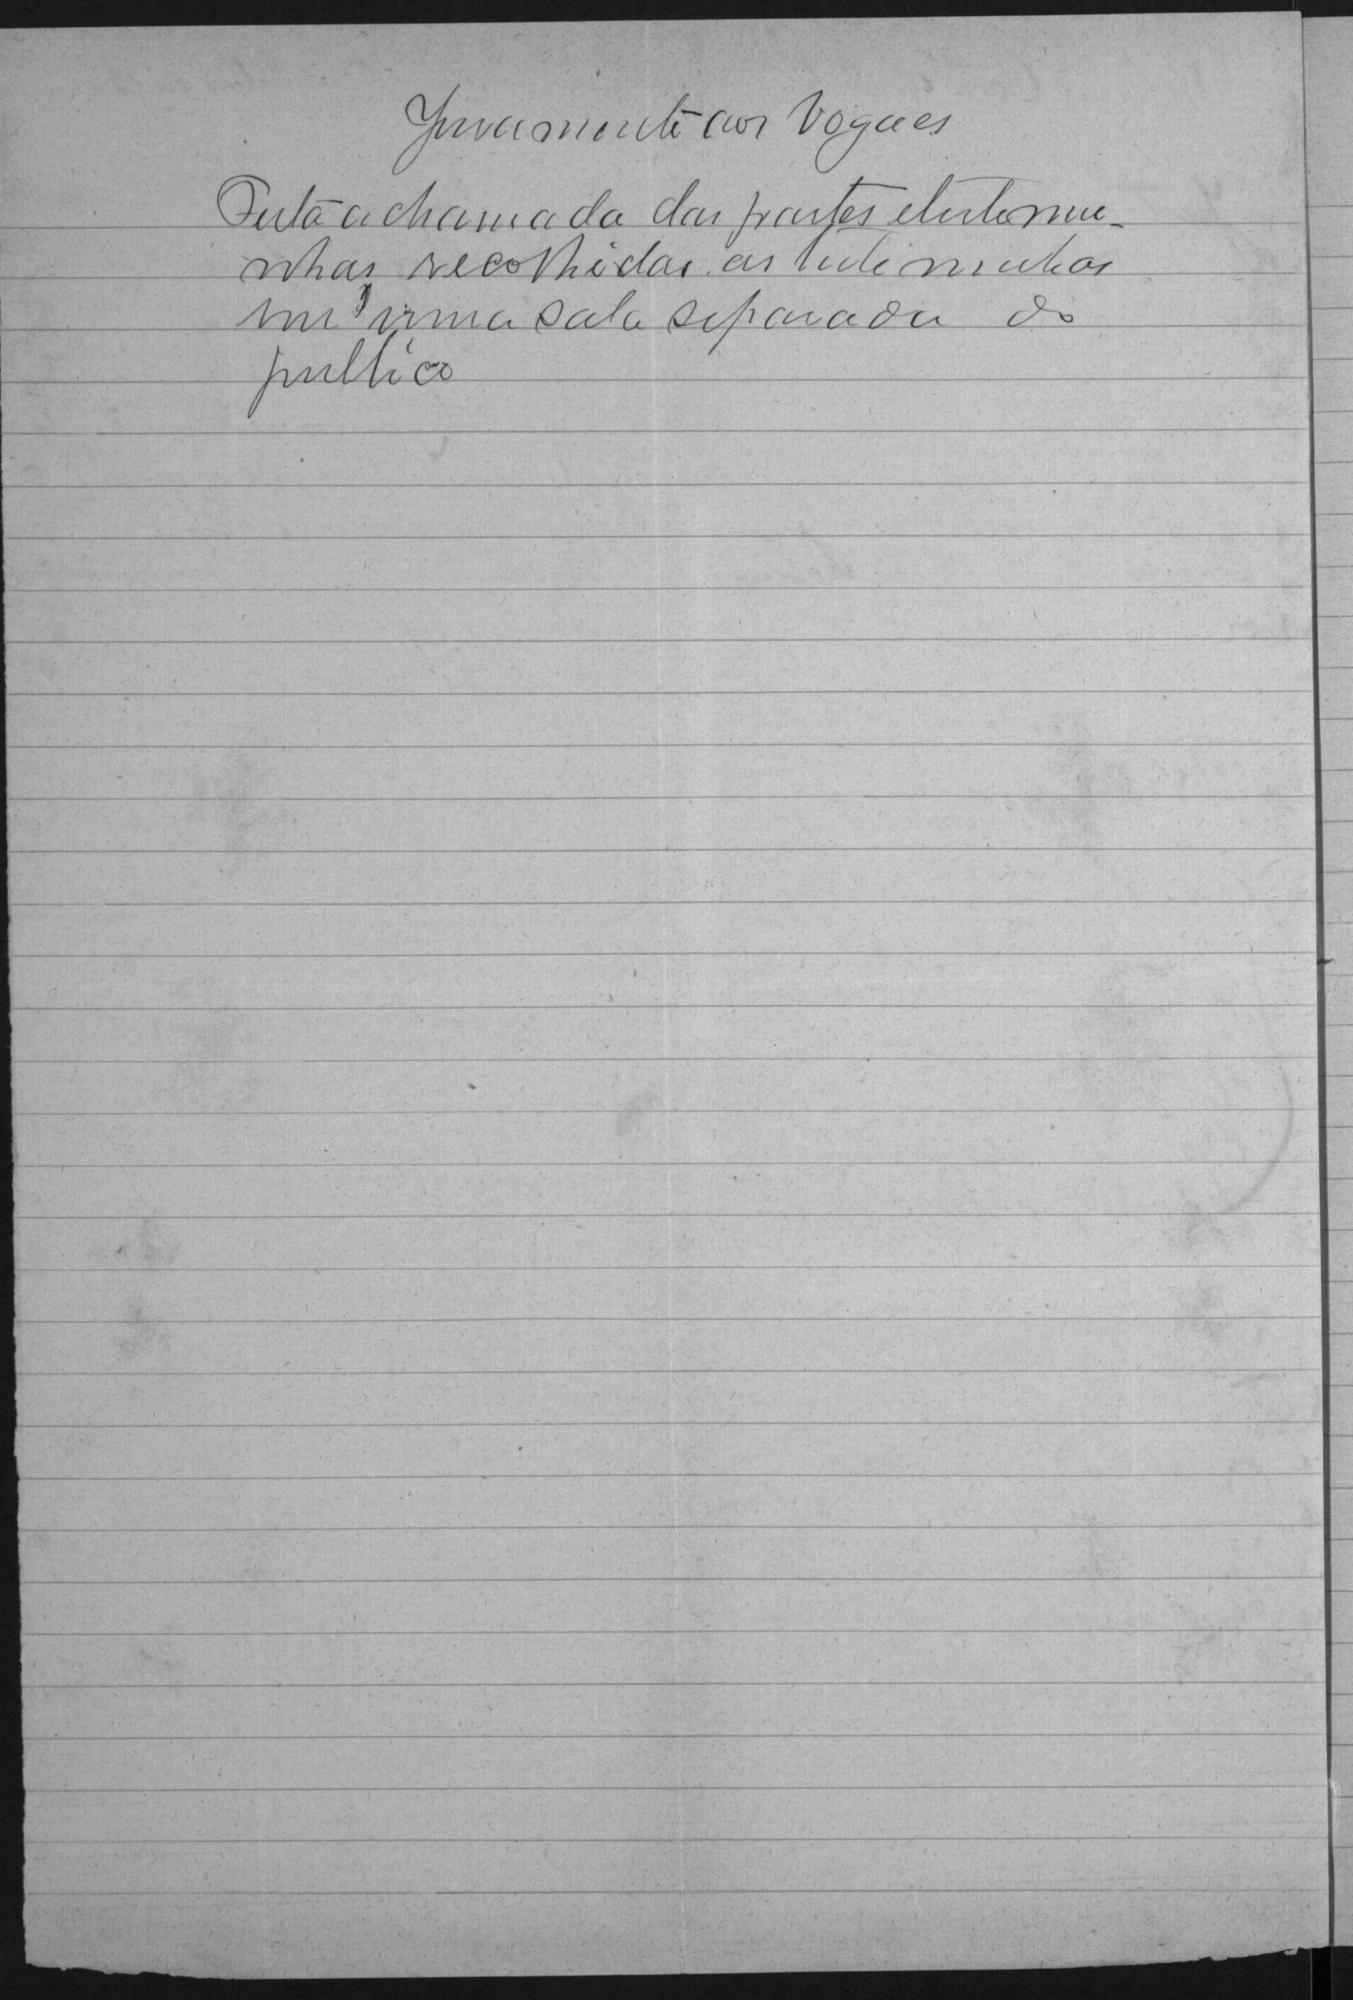 Juramento aos Vogaes
Feita a chamada das partes e testemu-
nhas, recolhidas as testemunhas
em uma sala separada do
publico